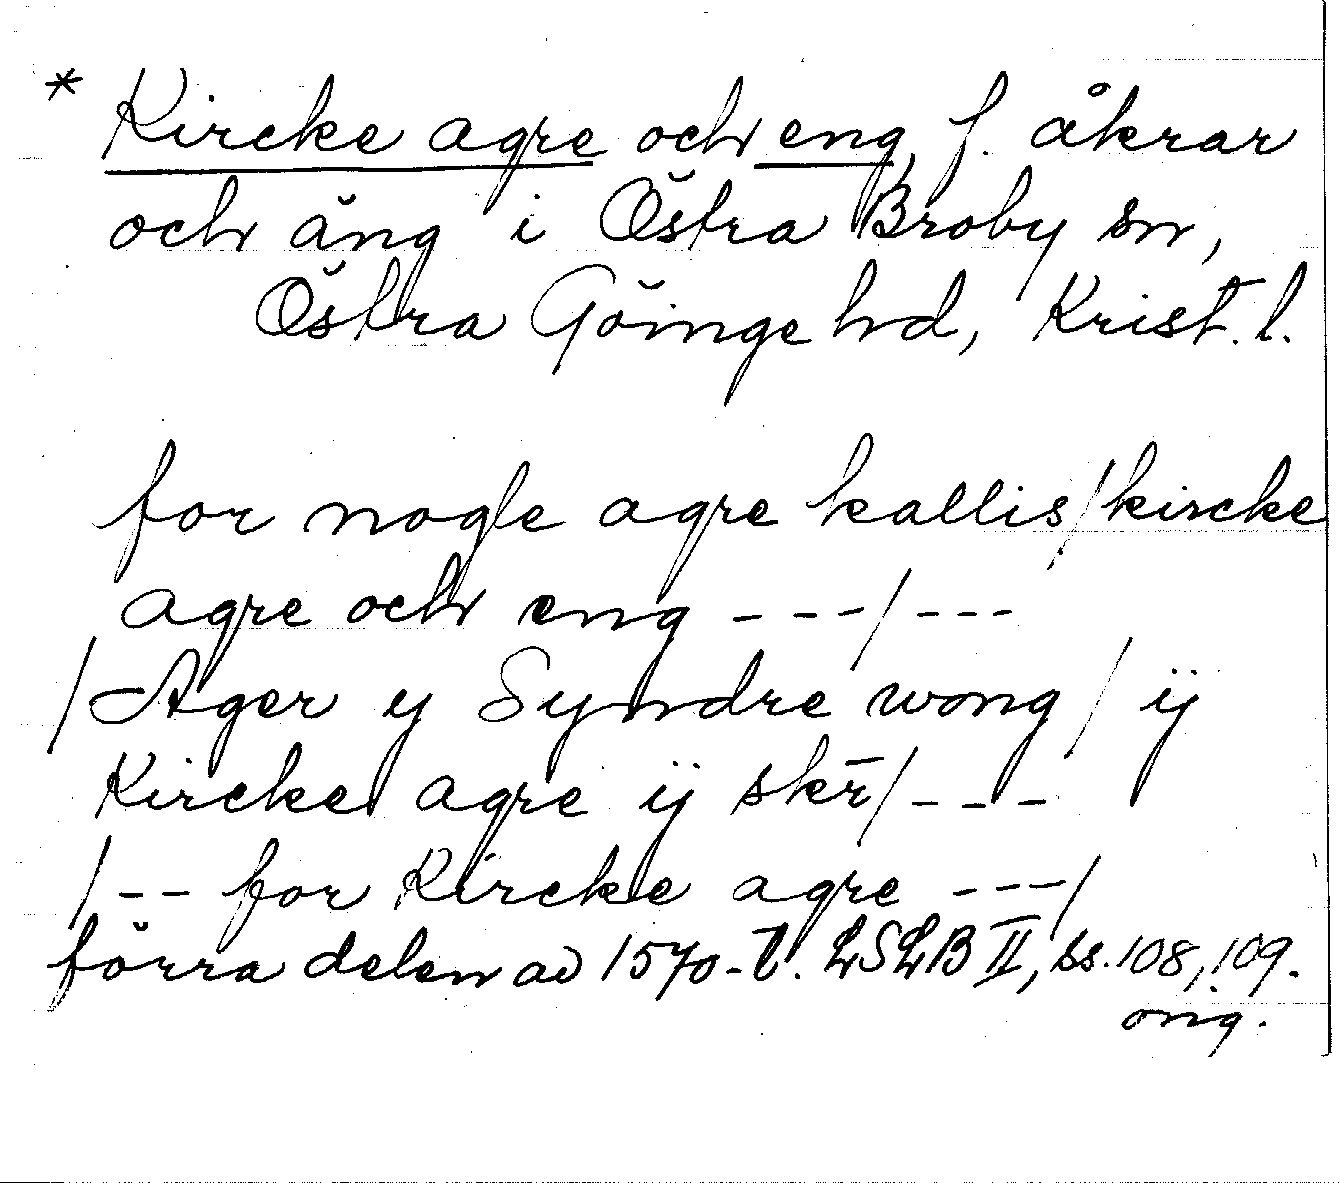 * Kircke agre och eng, f. åkrar
och äng i Östra Broby sn,
Östra Göinge hd, Krist. l.
for nogle agre kallis / kircke
agre och eng --- / ---
/ Ager y Syndre wong / ij
Kircke agre ij skr̄ / ---
/ -- for Kircke agre --- /
förra delen av 1570-t. LSLB II, ss. 108, 109.
orig.